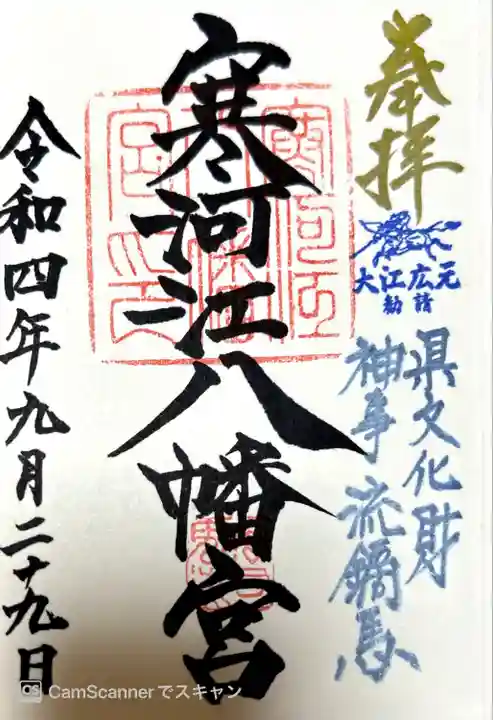 奉拝
大江広元
勧請
県文化財
神事 流鏑馬
寒河江八幡宮
令和四年九月二十九日
CS CamScannerでスキャン